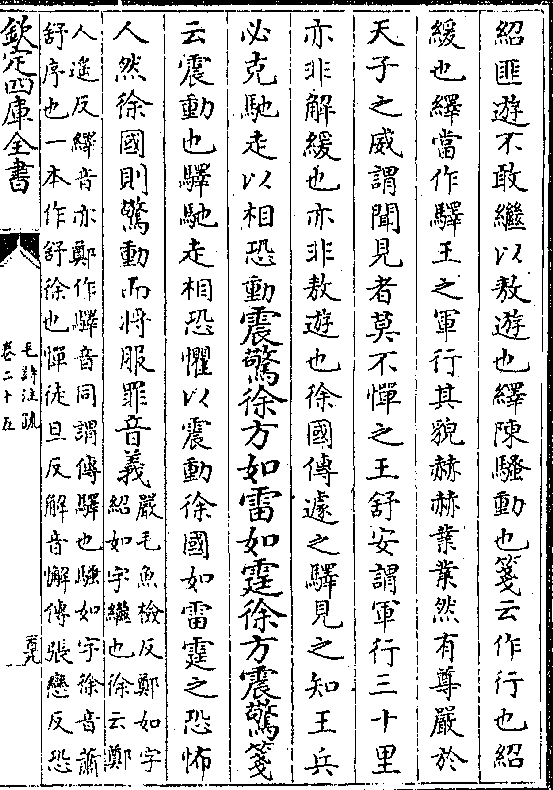 紹匪遊不敢繼以敖遊也繹陳騷動也箋云作行也紹
緩也繹當作驛王之軍行其貌赫赫業業然有尊嚴於
天子之威謂聞見者莫不憚之王舒安謂軍行三十里
亦非解緩也亦非敖遊也徐國傳遽之驛見之知王兵
必克馳走以相恐動震驚徐方如雷如霆徐方震驚箋
云震動也驛馳走相恐懼以震動徐國如雷霆之恐怖
人然徐國則驚動而将服罪音義
嚴毛魚檢反鄭如字
紹如字繼也徐云鄭
人遥反繹音亦鄭作驛音同謂傳驛也騷如字徐音蕭
舒序也一本作舒徐也憚徒旦反解音懈傳張戀反恐
欽定四庫全書
毛詩注疏
卷二十五